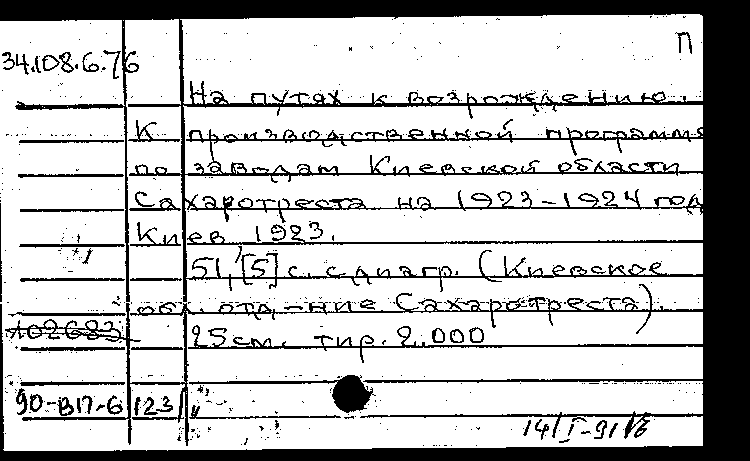 П
34.108.6.76
На путях к возрождению.
К производственной программе
по заводам Киевской области
Сахаротреста на 1923-1924 год
Киев, 1923.
51, [5] с. с диагр. (Киевское
обл. отд-ние Сахаротреста).
102683
25см. тир. 2.000
90-В17-6 123
14/I-91